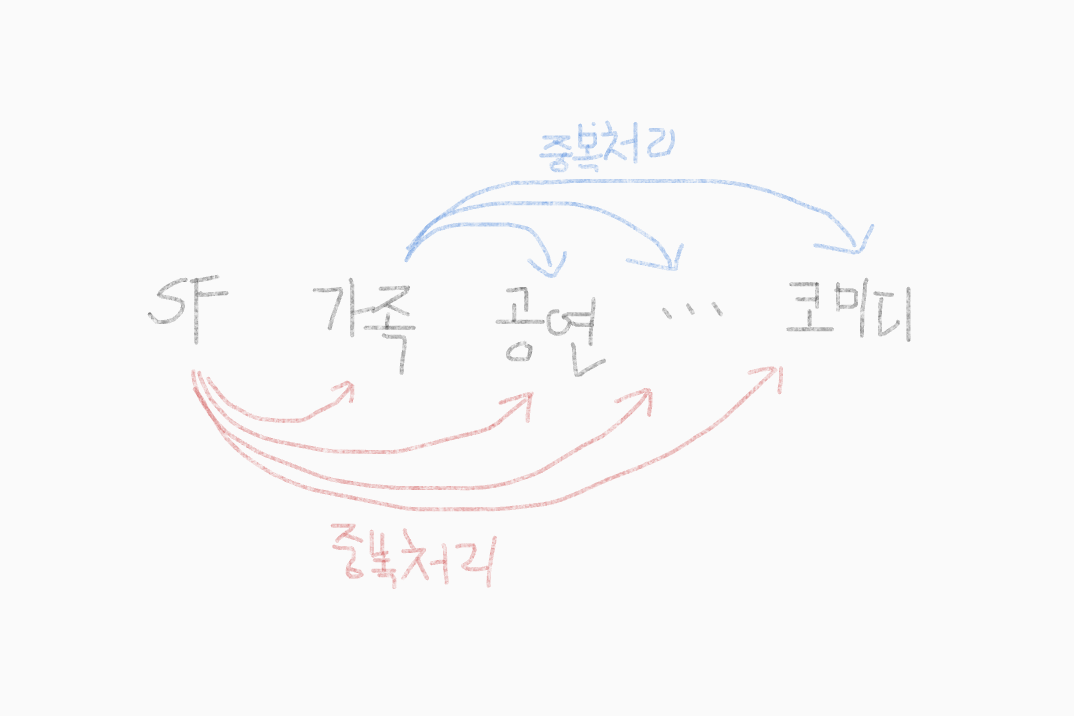 중복처리
SF 가족 공연 ... 코미디
중복처리